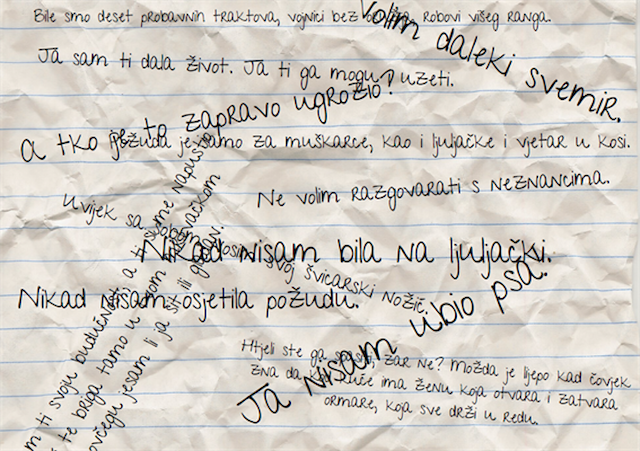 Bile smo deset probavnih traktova, vojnici bez robovi višeg ranga.
Volim daleki svemir.
Ja sam ti dala život. Ja ti ga mogu uzeti.
a tko je to zapravo ugrozio?
Požuda je samo za muškarce, kao i ljuljačke i vjetar u kosi.
Ne volim razgovarati s neznancima.
Uvijek sa sobom nosim svoj švicarski nožić.
Nikad nisam bila na ljuljački.
Nikad nisam osjetila požudu.
Ja nisam ubio psa.
Htjeli ste ga spasiti, zar ne? Možda je lijepo kad čovjek
zna da kod kuće ima ženu koja otvara i zatvara
ormare, koja sve drži u redu.
ti svoju budućnost a ti
te briga tamo u
jesam li ja sit ili gladan.